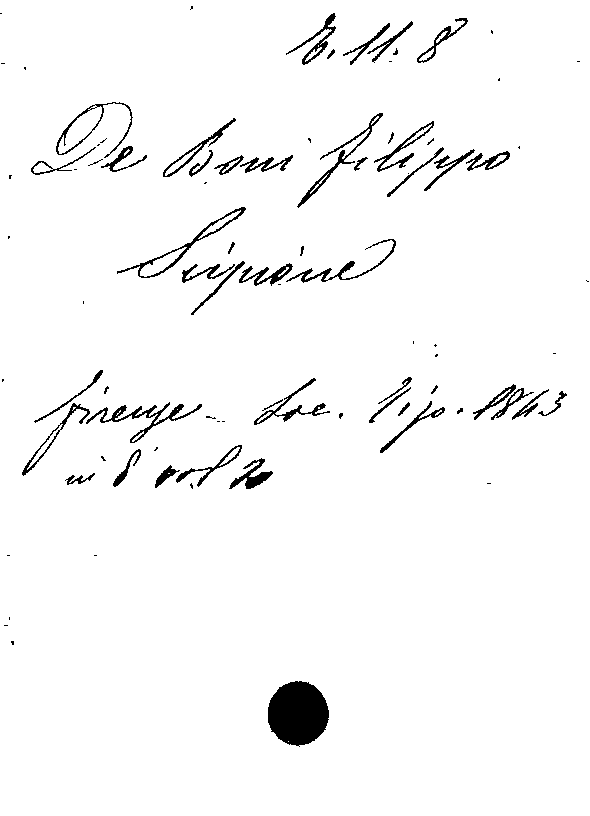 E. 11. 8
De Boni Filippo
Scipione
Firenze - Soc. Tipo. 1843
in 8° vol 2